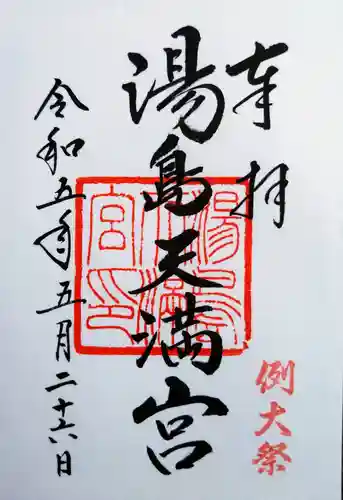 奉拝
湯島天満宮
令和五年五月二十六日
例大祭
湯島天満宮印